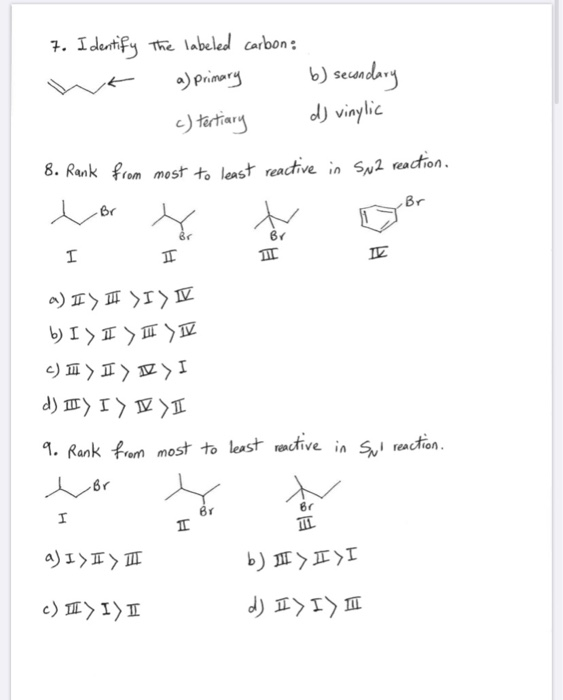 7. Identify The labeled carbon:
a) primary b) secondary
c) tertiary d) vinylic
8. Rank from most to least reactive in SN2 reaction.
Br Br Br Br
I II III IV
a) II > III > I > IV
b) I > II > III > IV
c) III > II > IV > I
d) III > I > IV > II
9. Rank from most to least reactive in SN1 reaction.
Br Br Br
I II III
a) I > II > III b) III > II > I
c) III > I > II d) II > I > III